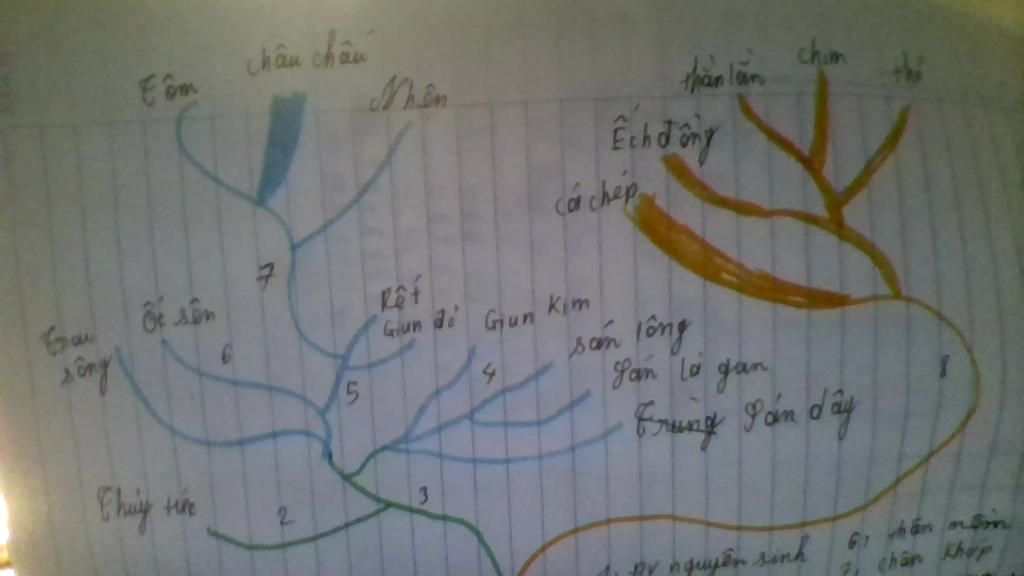 Tôm
châu chấu
Nhện
thằn lằn
chim
thỏ
Ếch đồng
cá chép
7
Rết
Giun đỏ
Giun Kim
sán lông
Sán lá gan
Trùng Sán dây
Ốc sên
Trai
sông
6
5
4
8
Thủy tức
2
3
1, ĐV nguyên sinh
6, thân mềm
7, chân khớp